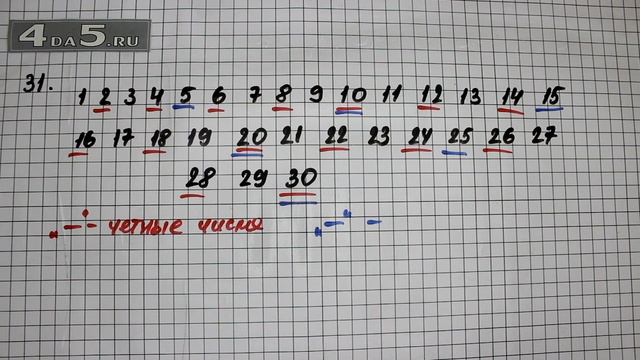 4DA5.RU
31.
1 2 3 4 5 6 7 8 9 10 11 12 13 14 15
16 17 18 19 20 21 22 23 24 25 26 27
28 29 30
„—“ - четные числа „—“ -